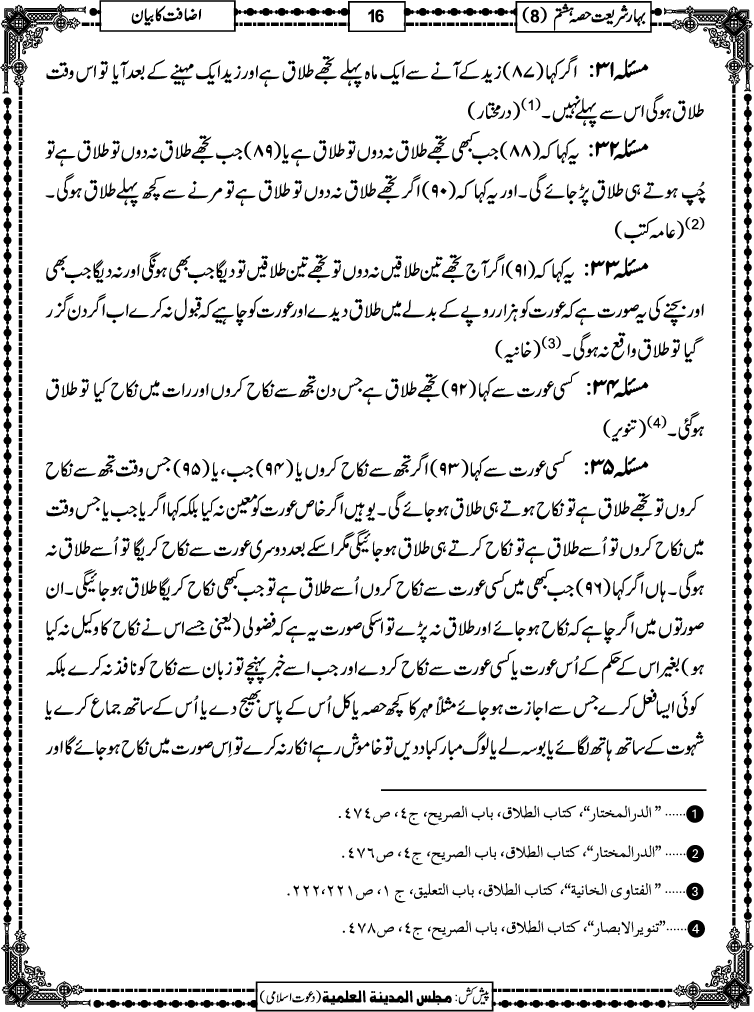 بہارِ شریعت حصہ ہشتم (8)
16
اضافت کا بیان
مسئلہ ۳۱: اگر کہا (۸۷) زید کے آنے سے ایک ماہ پہلے تجھے طلاق ہے اور زید ایک مہینے کے بعد آیا تو اس وقت
طلاق ہوگی اس سے پہلے نہیں۔(1) (درمختار)
مسئلہ ۳۲: یہ کہا کہ (۸۸) جب کبھی تجھے طلاق نہ دوں تو طلاق ہے یا (۸۹) جب تجھے طلاق نہ دوں تو طلاق ہے تو
چُپ ہوتے ہی طلاق پڑ جائے گی۔ اور یہ کہا کہ (۹۰) اگر تجھے طلاق نہ دوں تو طلاق ہے تو مرنے سے کچھ پہلے طلاق ہوگی۔
(2) (عامہ کتب)
مسئلہ ۳۳: یہ کہا کہ (۹۱) اگر آج تجھے تین طلاقیں نہ دوں تو تجھے تین طلاقیں تو دیگا جب بھی ہونگی اور نہ دیگا جب بھی
اور بچنے کی یہ صورت ہے کہ عورت کو ہزار روپے کے بدلے میں طلاق دیدے اور عورت کو چاہیے کہ قبول نہ کرے اب اگر دن گزر
گیا تو طلاق واقع نہ ہوگی۔(3) (خانیہ)
مسئلہ ۳۴: کسی عورت سے کہا (۹۲) تجھے طلاق ہے جس دن تجھ سے نکاح کروں اور رات میں نکاح کیا تو طلاق
ہوگئی۔(4) (تنویر)
مسئلہ ۳۵: کسی عورت سے کہا (۹۳) اگر تجھ سے نکاح کروں یا (۹۴) جب، یا (۹۵) جس وقت تجھ سے نکاح
کروں تو تجھے طلاق ہے تو نکاح ہوتے ہی طلاق ہو جائے گی۔ یوہیں اگر خاص عورت کو معین نہ کیا بلکہ کہا اگر یا جب یا جس وقت
میں نکاح کروں تو اُسے طلاق ہے تو نکاح کرتے ہی طلاق ہو جائیگی مگر اسکے بعد دوسری عورت سے نکاح کریگا تو اُسے طلاق نہ
ہوگی۔ ہاں اگر کہا (۹۶) جب کبھی میں کسی عورت سے نکاح کروں اُسے طلاق ہے تو جب کبھی نکاح کریگا طلاق ہو جائیگی۔ ان
صورتوں میں اگر چاہے کہ نکاح ہو جائے اور طلاق نہ پڑے تو اسکی صورت یہ ہے کہ فضولی (یعنی جسے اس نے نکاح کا وکیل نہ کیا
ہو) بغیر اس کے حکم کے اُس عورت یا کسی عورت سے نکاح کردے اور جب اسے خبر پہنچے تو زبان سے نکاح کو نافذ نہ کرے بلکہ
کوئی ایسا فعل کرے جس سے اجازت ہو جائے مثلاً مہر کا کچھ حصہ یا کل اُس کے پاس بھیج دے یا اُس کے ساتھ جماع کرے یا
شہوت کے ساتھ ہاتھ لگائے یا بوسہ لے یا لوگ مبارکباد دیں تو خاموش رہے انکار نہ کرے تو اِس صورت میں نکاح ہو جائے گا اور
1 ...... "الدرالمختار"، کتاب الطلاق، باب الصریح، ج٤، ص٤٧٤.
2 ...... "الدرالمختار"، کتاب الطلاق، باب الصریح، ج٤، ص٤٧٦.
3 ...... "الفتاوی الخانیة"، کتاب الطلاق، باب التعلیق، ج ١، ص٢٢٢،٢٢١.
4 ...... "تنویرالابصار"، کتاب الطلاق، باب الصریح، ج٤، ص٤٧٨.
پیش کش: مجلس المدینة العلمیة (دعوت اسلامی)